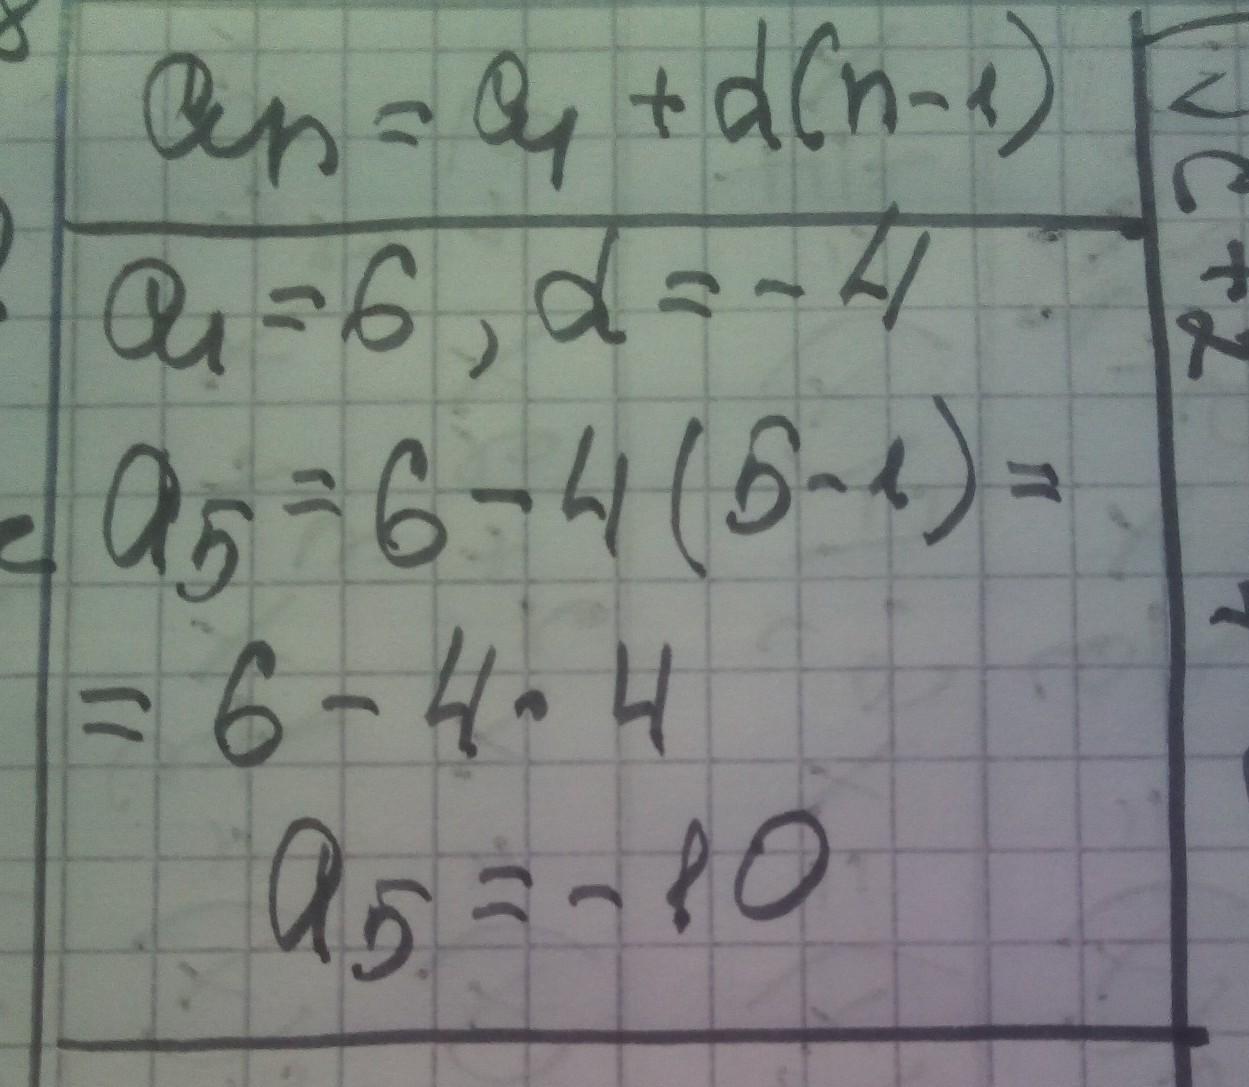 aₙ = a₁ + d(n-1)
a₁ = 6, d = -4
a₅ = 6 - 4(5-1) =
= 6 - 4 · 4
a₅ = -10